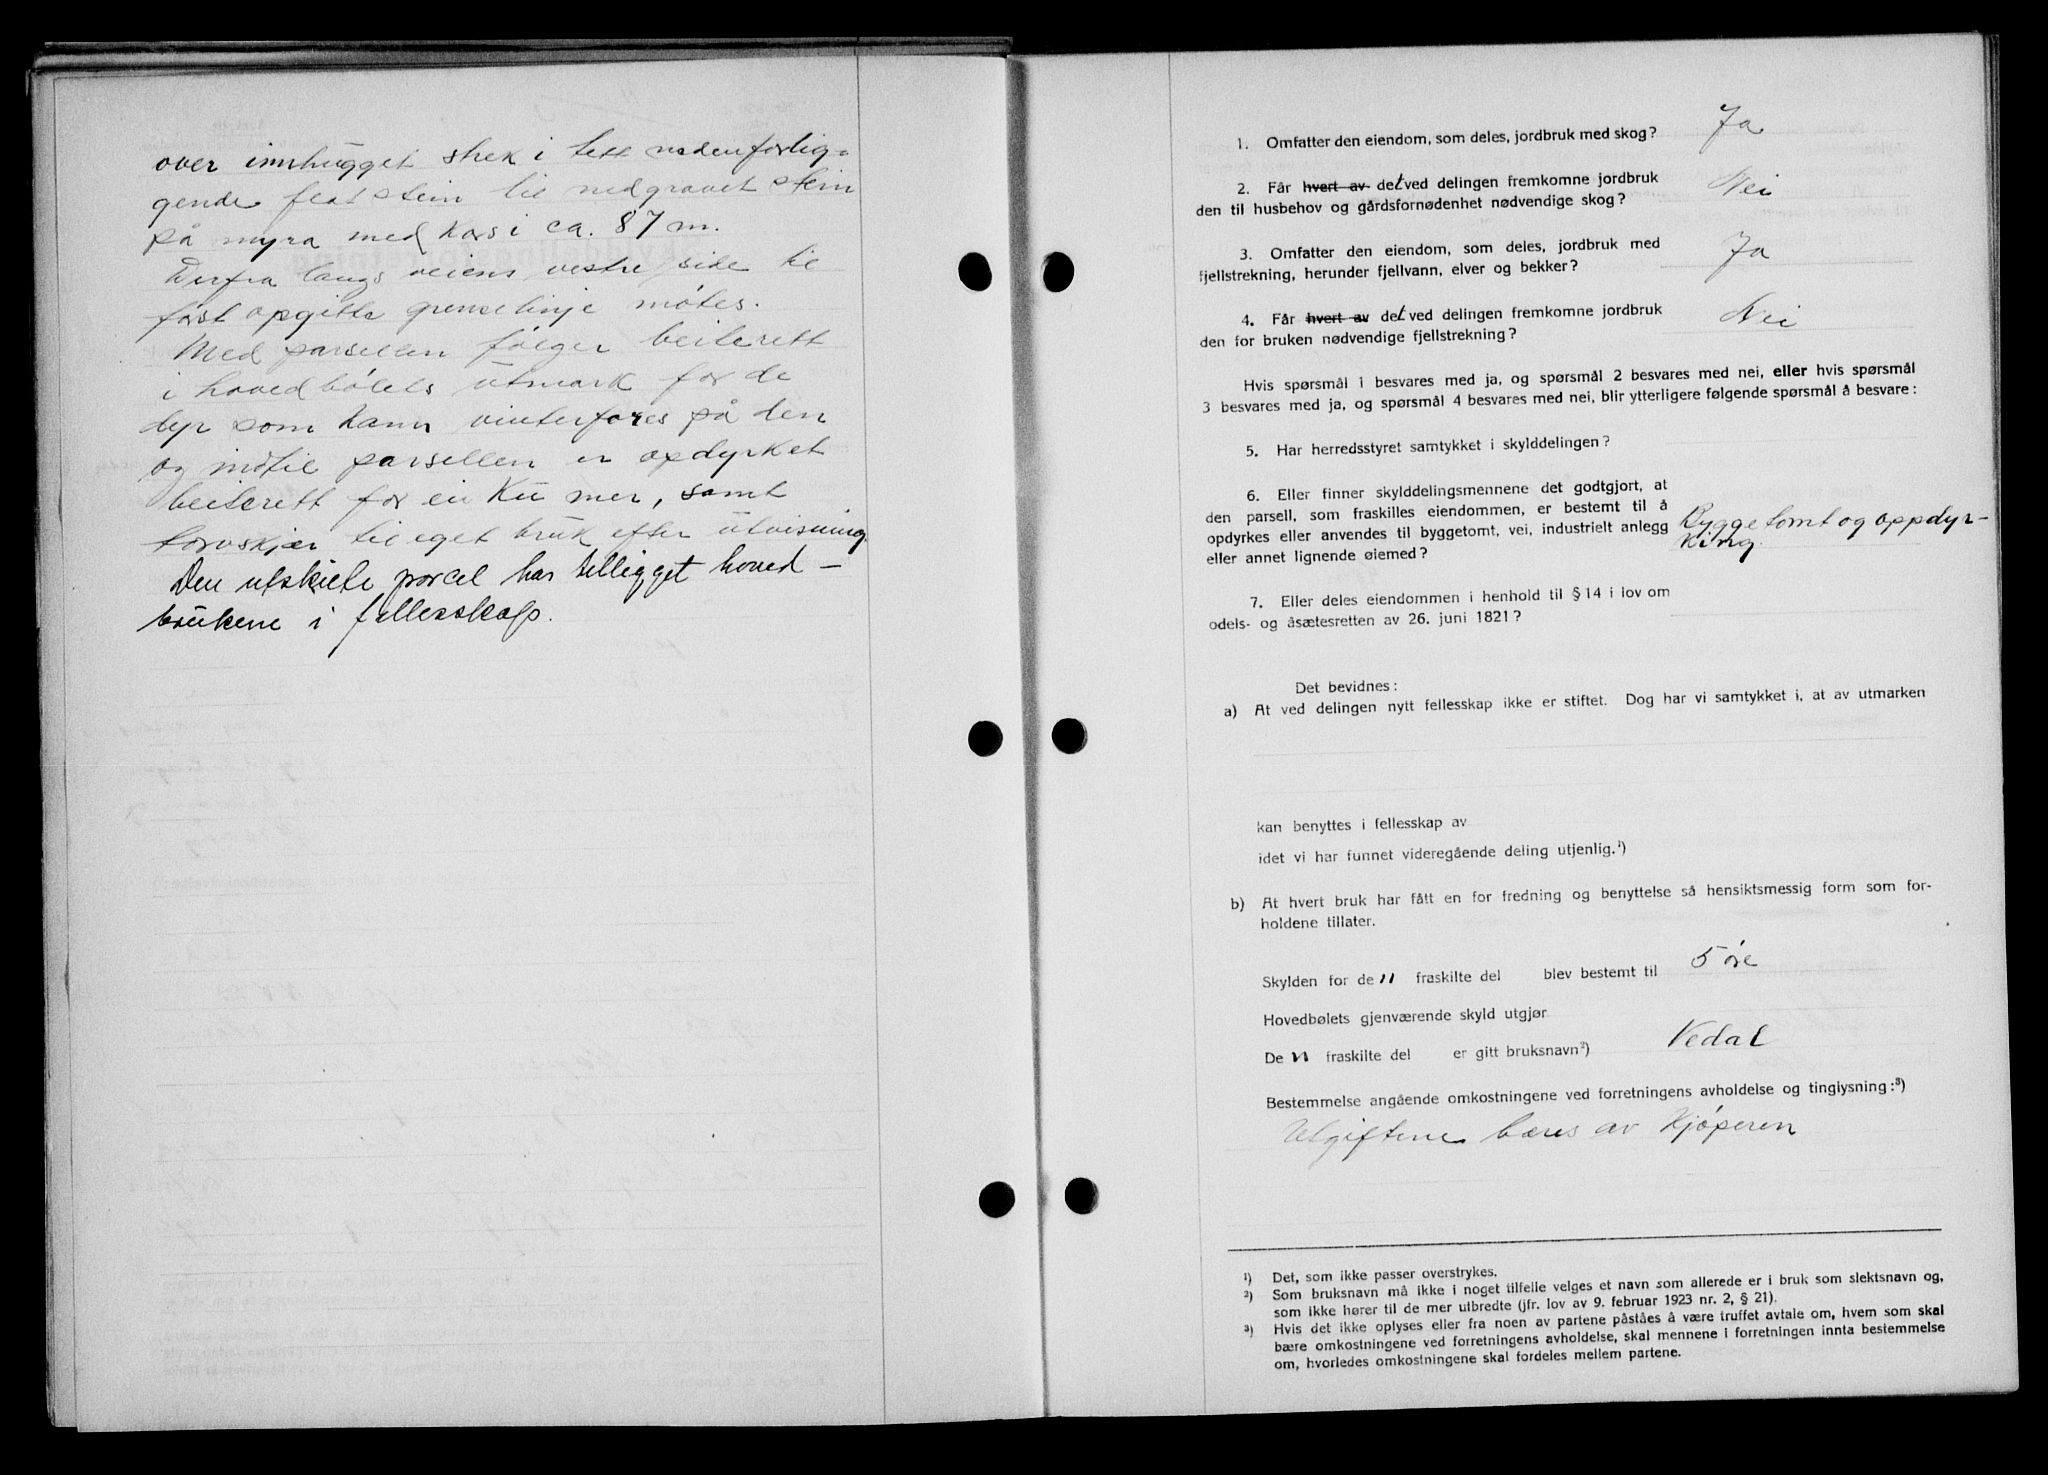 over innhugget strek i tett nedenforlig-
gende flat stein til nedgravet stein
på myra med kors i ca. 87 m.
Derfra langs veiens vestre side til
først opgitte grenselinje møtes.
Med parsellen følger beiterett
i hovedbølets utmark for de
dyr som kann vinterfores på den
og indtil parsellen er opdyrket
beiterett for ei Ku mer, samt
torvskjær til eget bruk efter utvisning.
Den utskilte parcel har tilligget hoved-
brukene i fellesskap.
1. Omfatter den eiendom, som deles, jordbruk med skog? Ja
2. Får hvert av det ved delingen fremkomne jordbruk
den til husbehov og gårdsfornødenhet nødvendige skog? Nei
3. Omfatter den eiendom, som deles, jordbruk med
fjellstrekning, herunder fjellvann, elver og bekker? Ja
4. Får hvert av det ved delingen fremkomne jordbruk
den for bruken nødvendige fjellstrekning? Nei
Hvis spørsmål 1 besvares med ja, og spørsmål 2 besvares med nei, eller hvis spørsmål
3 besvares med ja, og spørsmål 4 besvares med nei, blir ytterligere følgende spørsmål å besvare:
5. Har herredsstyret samtykket i skylddelingen?
6. Eller finner skylddelingsmennene det godtgjort, at
den parsell, som fraskilles eiendommen, er bestemt til å
opdyrkes eller anvendes til byggetomt, vei, industrielt anlegg Byggetomt og oppdyr-
eller annet lignende øiemed? king.
7. Eller deles eiendommen i henhold til § 14 i lov om
odels- og åsætesretten av 26. juni 1821?
Det bevidnes:
a) At ved delingen nytt fellesskap ikke er stiftet. Dog har vi samtykket i, at av utmarken
kan benyttes i fellesskap av
idet vi har funnet videregående deling utjenlig.¹)
b) At hvert bruk har fått en for fredning og benyttelse så hensiktsmessig form som for-
holdene tillater.
Skylden for de n fraskilte del blev bestemt til 5 øre
Hovedbølets gjenværende skyld utgjør
De n fraskilte del er gitt bruksnavn²) Vedal
Bestemmelse angående omkostningene ved forretningens avholdelse og tinglysning:³)
Utgiftene bæres av Kjøperen
¹) Det, som ikke passer overstrykes.
²) Som bruksnavn må ikke i noget tilfelle velges et navn som allerede er i bruk som slektsnavn og,
som ikke hører til de mer utbredte (jfr. lov av 9. februar 1923 nr. 2, § 21).
³) Hvis det ikke oplyses eller fra noen av partene påståes å være truffet avtale om, hvem som skal
bære omkostningene ved forretningens avholdelse, skal mennene i forretningen innta bestemmelse
om, hvorledes omkostningene skal fordeles mellem partene.